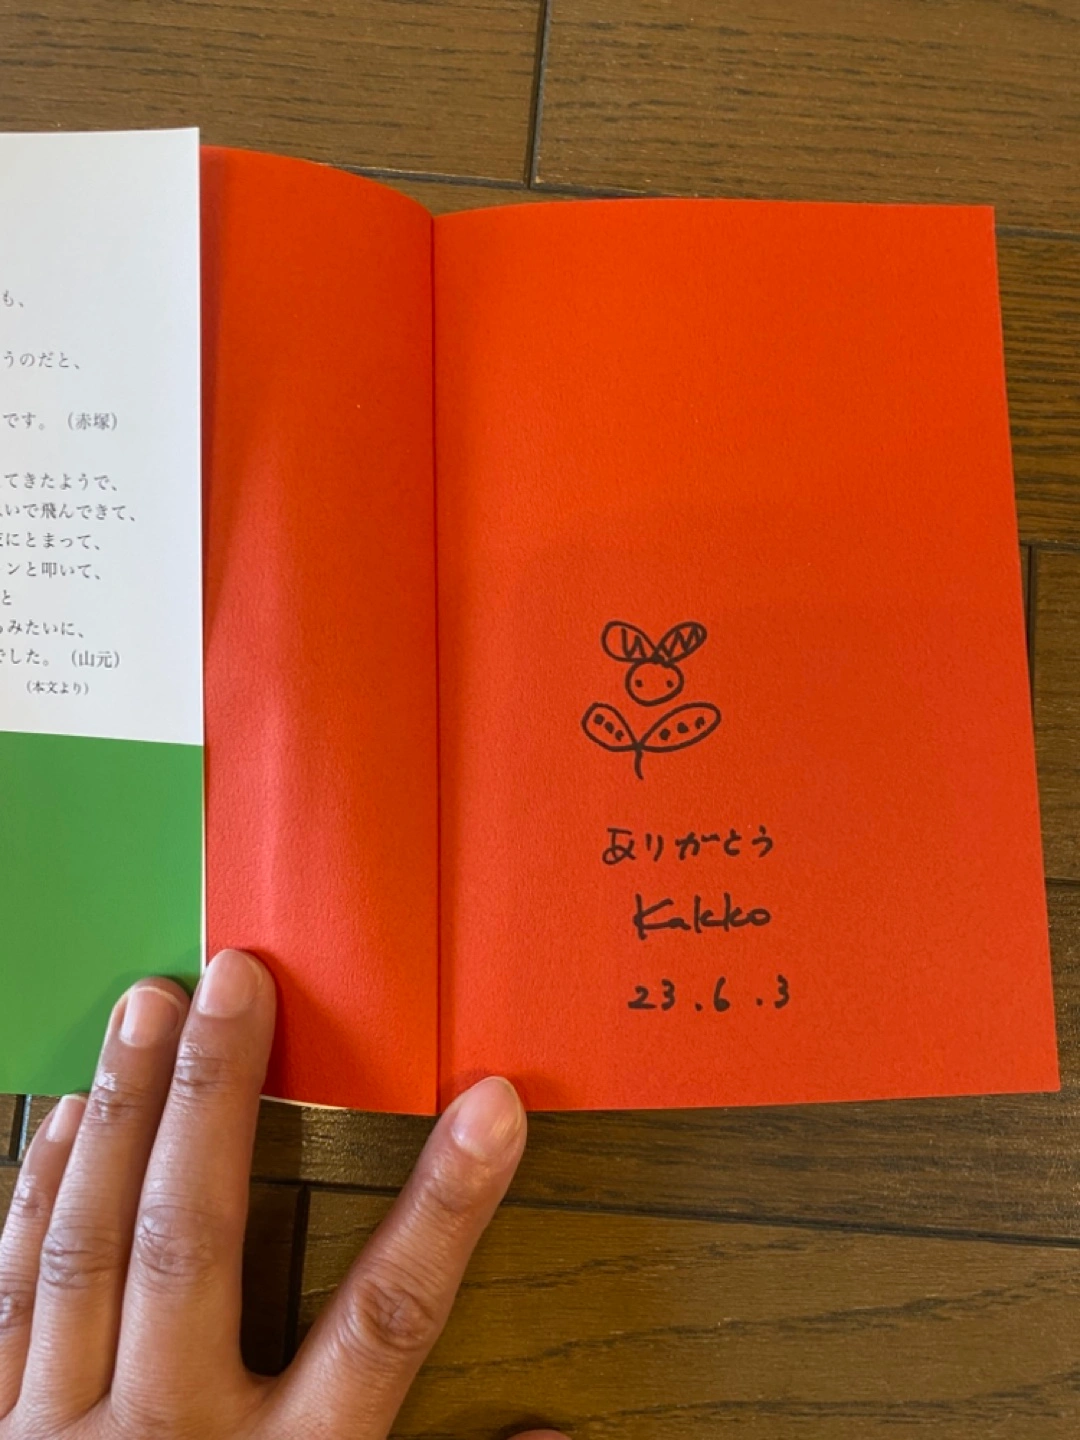 も、
うのだと、
です。（赤塚）
てきたようで、
いで飛んできて、
にとまって、
ンと叩いて、
と
みたいに、
でした。（山元）
（本文より）
ありがとう
Kakko
23.6.3